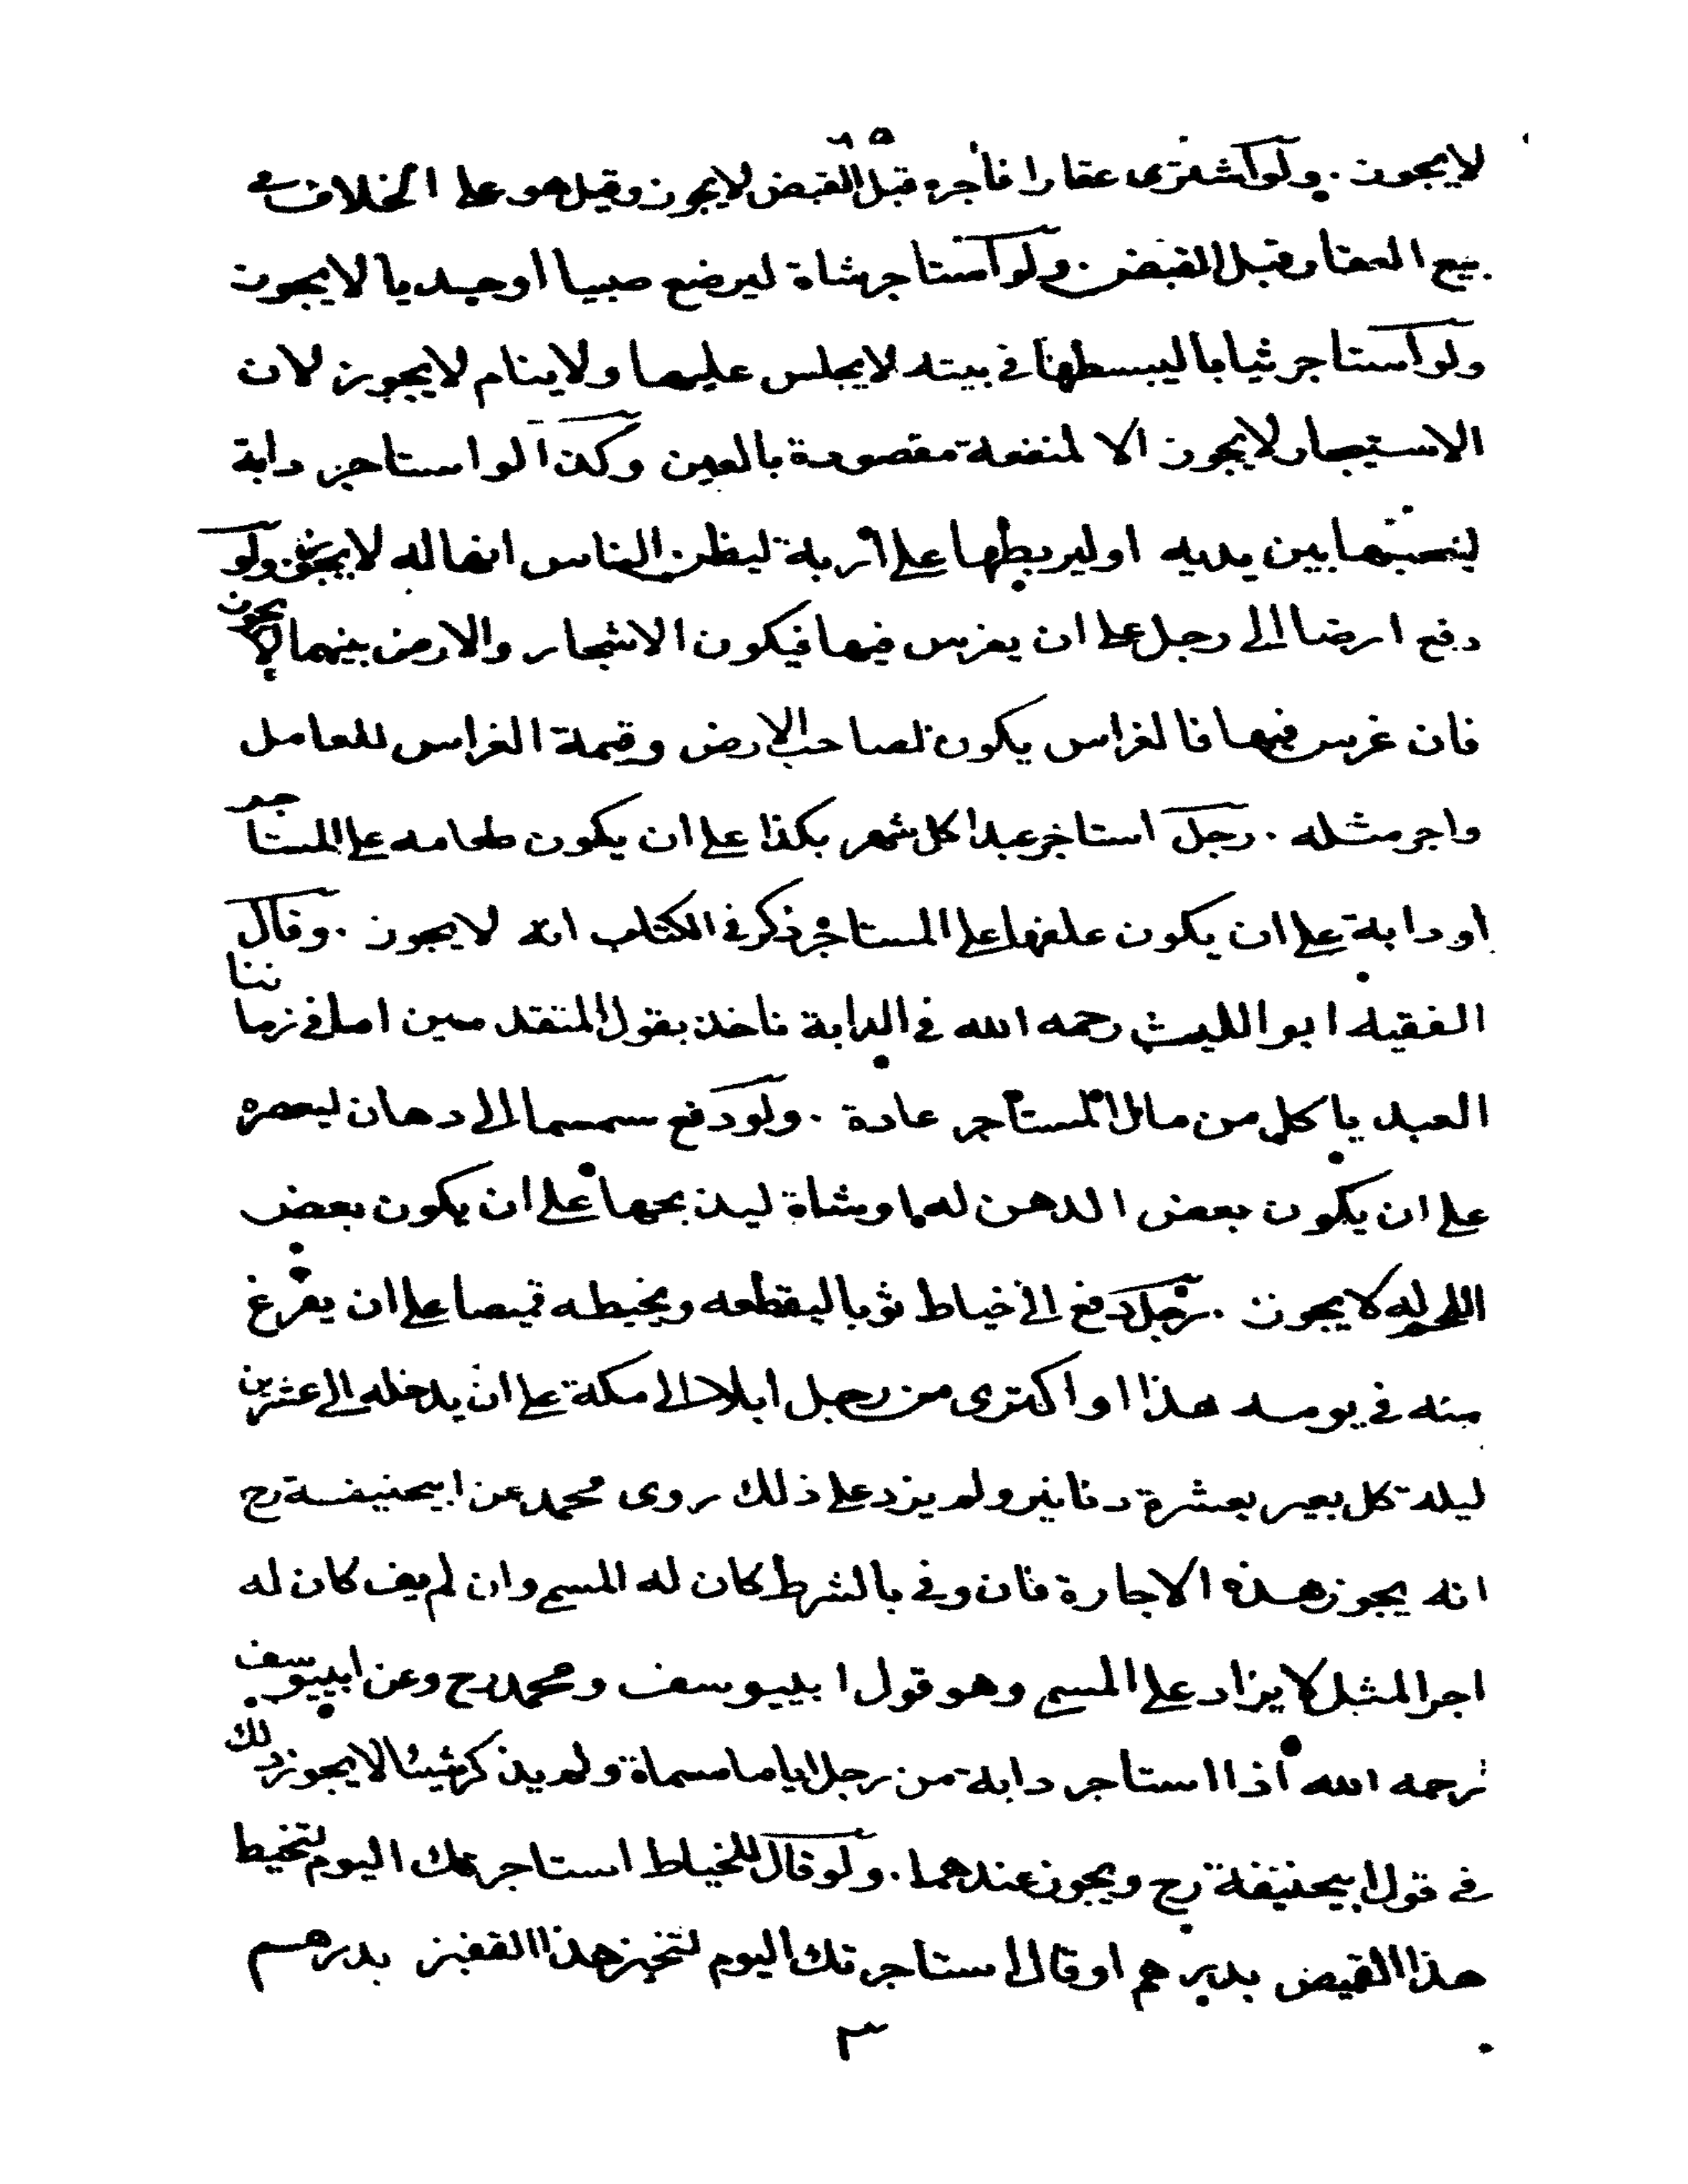 ٦٥
لايجوز . ولو اشترى عقارا فأجره قبل القبض لايجوز وقيل هو على الخلاف في
بيع العقار قبل القبض . ولو استاجر شاة ليرضع صبيا او جديا لايجوز
ولو استاجر ثيابا ليبسطها في بيته لايجلس عليها ولاينام لايجوز لان
الاستيجار لايجوز الا لمنفعة مقصودة بالعين وكذا لو استاجر دابة
بين يديه او ليربطها على ليظن الناس انها له لايجوز ولو
دفع ارضا الى رجل على ان يغرس فيها فيكون الاشجار والارض بينهما لايجوز
فان غرس فيها فالغراس يكون لصاحب الارض وقيمة الغراس للعامل
واجر مثله . رجل استاجر عبدا كل شهر بكذا على ان يكون طعامه على المستاجر
او دابة على ان يكون علفها على المستاجر ذكر في الكتاب انه لايجوز . وقال
الفقيه ابو الليث رحمه الله في الدابة ناخذ بقول المتقدمين اما في زماننا
العبد ياكل من مال المستاجر عادة . ولو دفع سمسما الى دهان ليعصره
على ان يكون بعض الدهن له او شاة ليذبحها على ان يكون بعض
اللحم له لايجوز . رجل دفع الى خياط ثوبا ليقطعه ويخيطه قميصا على ان يفرغ
منه في يومه هذا او اكترى من رجل ابلا الى مكة على ان يدخله الى عشرين
ليلة كل بعير بعشرة دنانير ولم يزد على ذلك روى محمد عن ابيحنيفة رح
انه يجوز هذه الاجارة فان وفى بالشرط كان له المسمى وان لم يف كان له
اجر المثل لايزاد على المسمى وهو قول ابييوسف ومحمد رح وعن ابييوسف
رحمه الله اذا استاجر دابة من رجل اياما مسماة ولم يذكر شيئا لايجوز ذلك
في قول ابيحنيفة رح ويجوز عندهما . ولو قال للخياط استاجرتك اليوم لتخيط
هذا القميص بدرهم او قال استاجرتك اليوم لتخبز هذا القفيز بدرهم